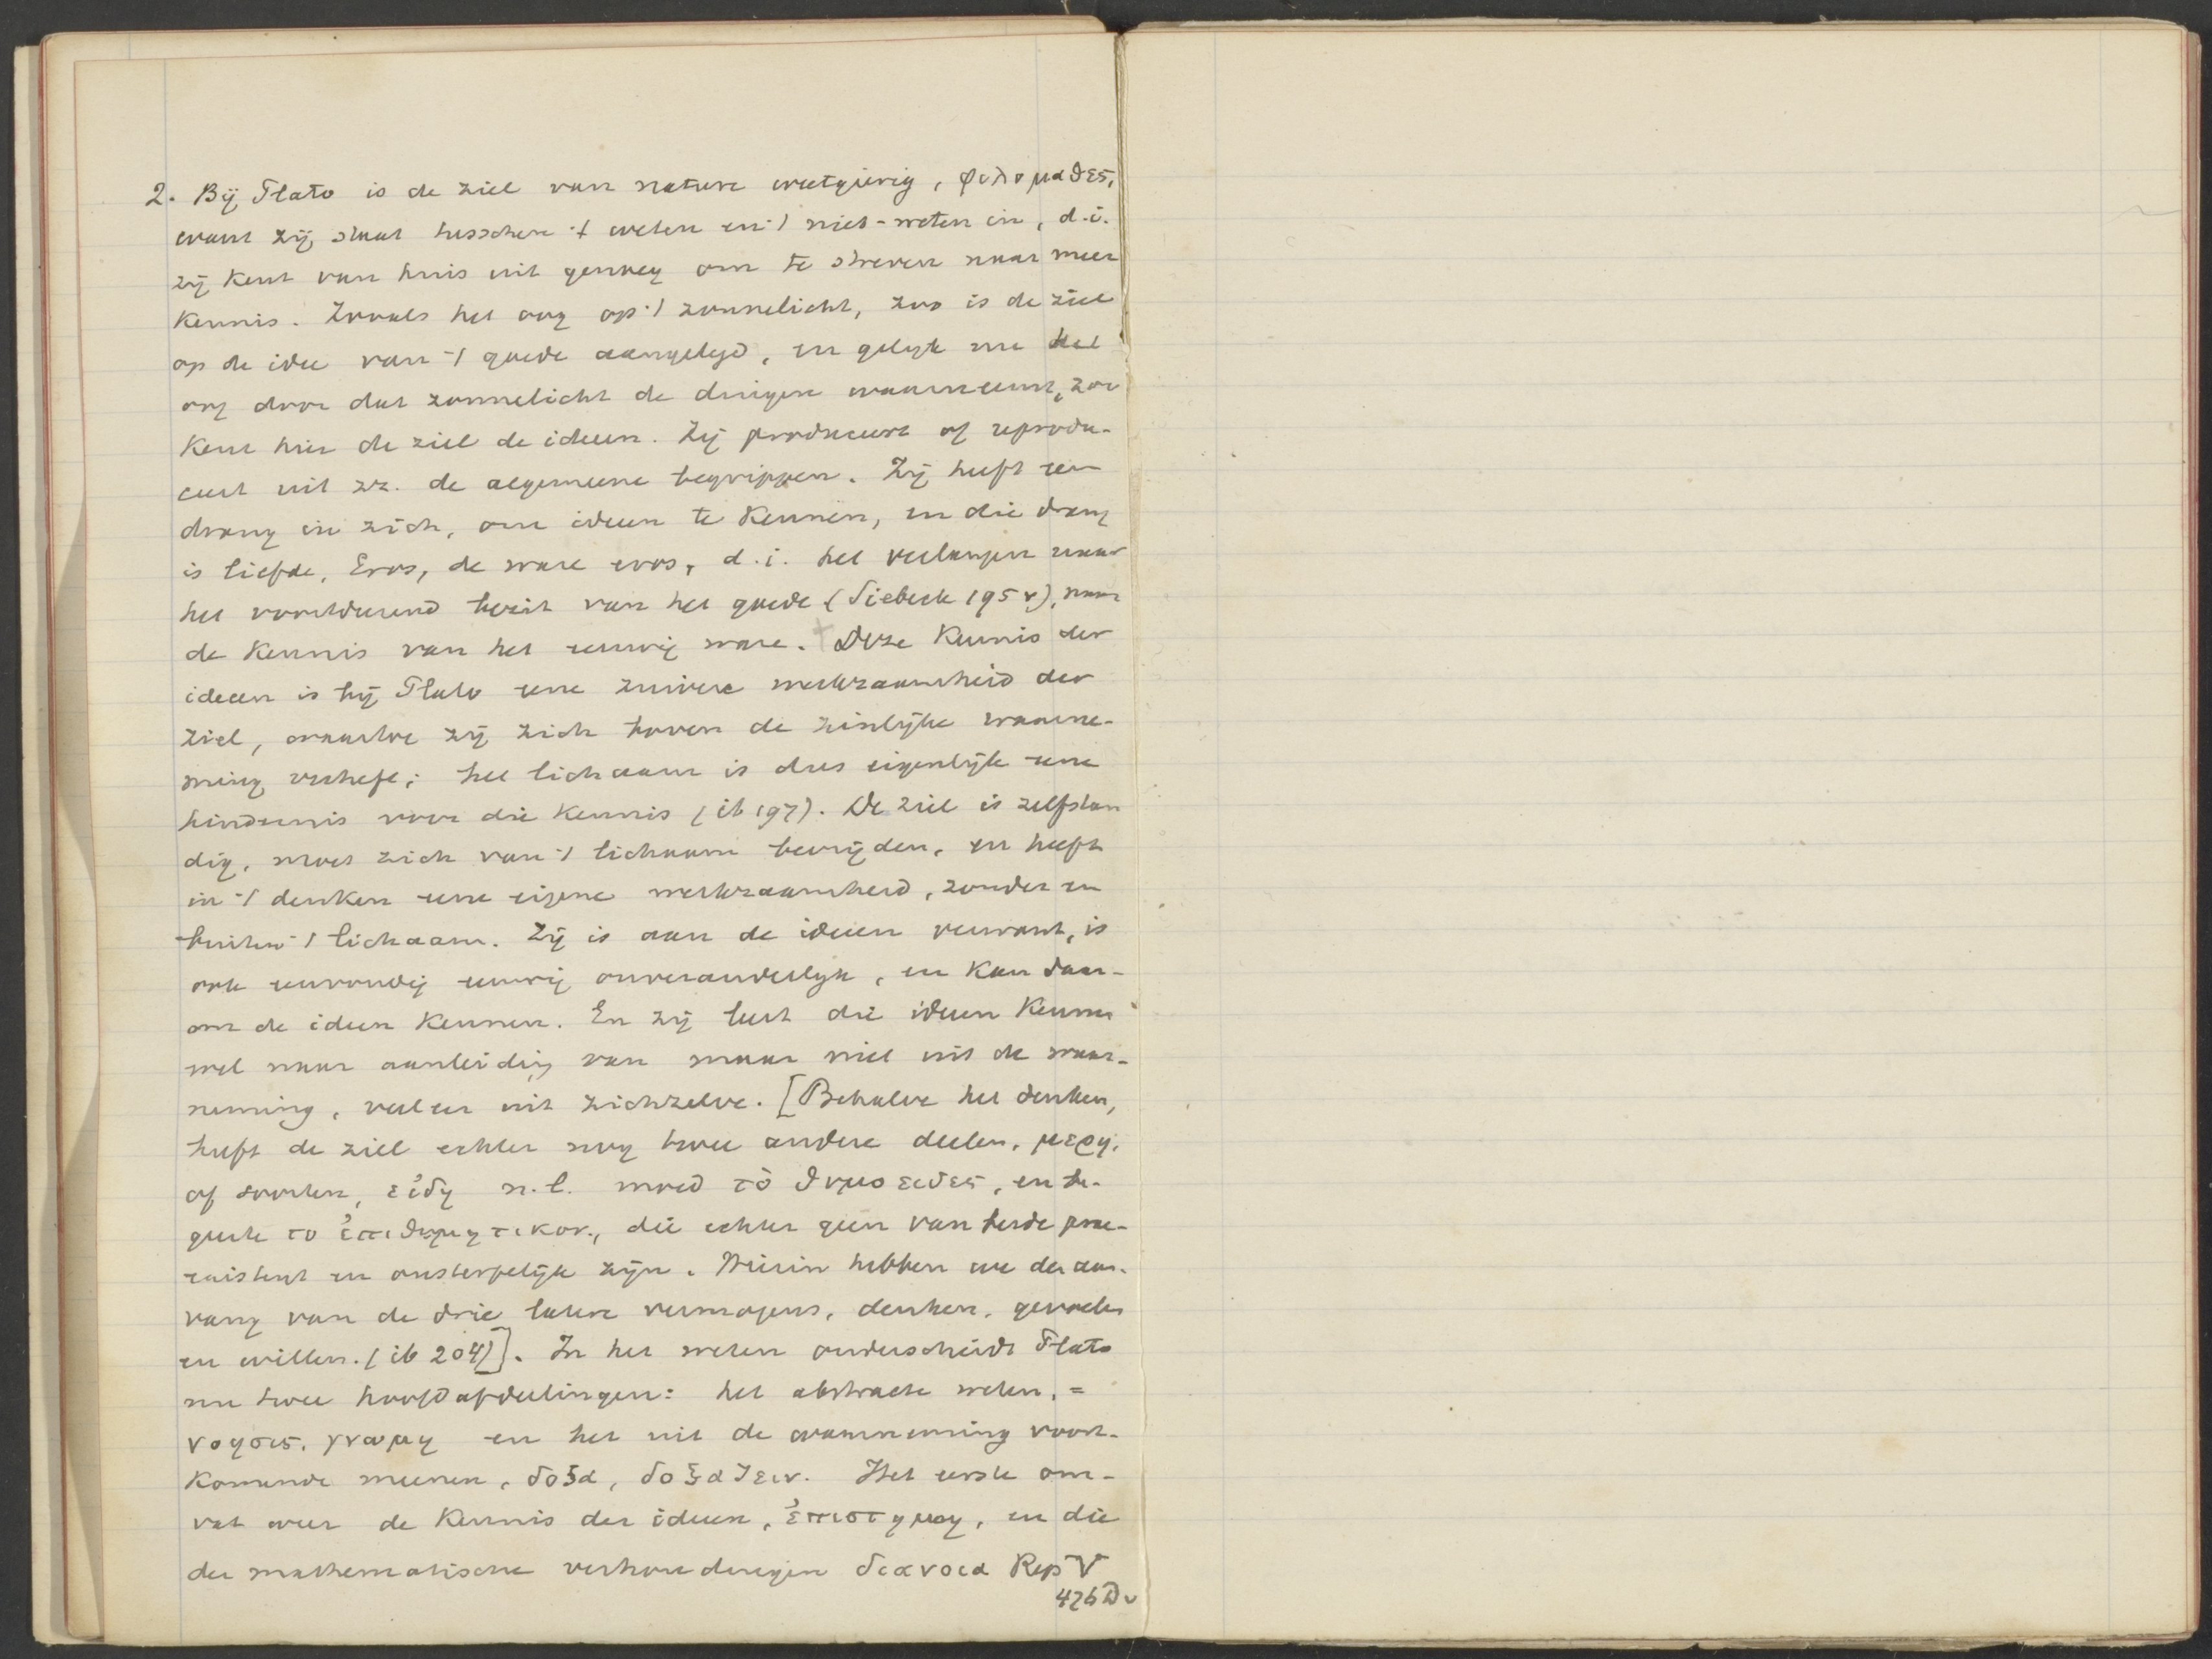 2. Bij Plato is de ziel van nature weetgierig, φιλομαθες,
want zij staat tusschen 't weten en 't niet-weten in, d.i.
zij kent van huis uit genoeg om te streven naar meer
kennis. Zooals het oog op 't zonnelicht, zoo is de ziel
op de idee van 't goede aangelegd, en gelijk nu het
oog door dat zonnelicht de dingen waarneemt, zoo
kent hier de ziel de ideeen. Zij produceert of reprodu-
ceert uit zz. de algemeene begrippen. Zij heeft een
drang in zich, om ideeen te kennen, en die drang
is liefde, Eros, de ware eros, d.i. het verlangen naar
het voortdurend bezit van het goede (Siebeck 195 v), naar
de kennis van het eeuwig ware. Deze kennis der
ideeen is bij Plato eene zuivere werkzaamheid der
ziel, waardoor zij zich boven de zinlijke waarne-
ming verheft; het lichaam is dus eigenlijk eene
hindernis voor die kennis (ib 197). De ziel is zelfstan
dig, moet zich van 't lichaam bevrijden, en heeft
in 't denken eene eigene werkzaamheid, zonder en
buiten 't lichaam. Zij is aan de ideeen verwant, is
ook eenvoudig eeuwig onveranderlijk, en kan daar-
om de ideeen kennen. En zij leert die ideeen kennen
wel naar aanleiding van maar niet uit de waar-
neming, veeleer uit zichzelve. [Behalve het denken,
heeft de ziel echter nog twee andere deelen, μερη,
of soorten, εἰδη n.l. moed τὸ θυμοειδες, en be-
geerte το ἐπιθυμητικον, die echter geen van beide prae-
existent en onsterfelijk zijn. Hierin hebben we den aan-
vang van de drie latere vermogens, denken, gevoelen
en willen. (ib 204)]. In het weten onderscheidt Plato
nu twee hoofdafdeelingen: het abstracte weten, =
νοησις, γνωμη en het uit de waarneming voort-
komende meenen, δοξα, δοξαζειν. Het eerste om-
vat weer de kennis der ideeen, ἐπιστημη, en die
der mathematische verhoudingen διανοια Rep V
476 D v